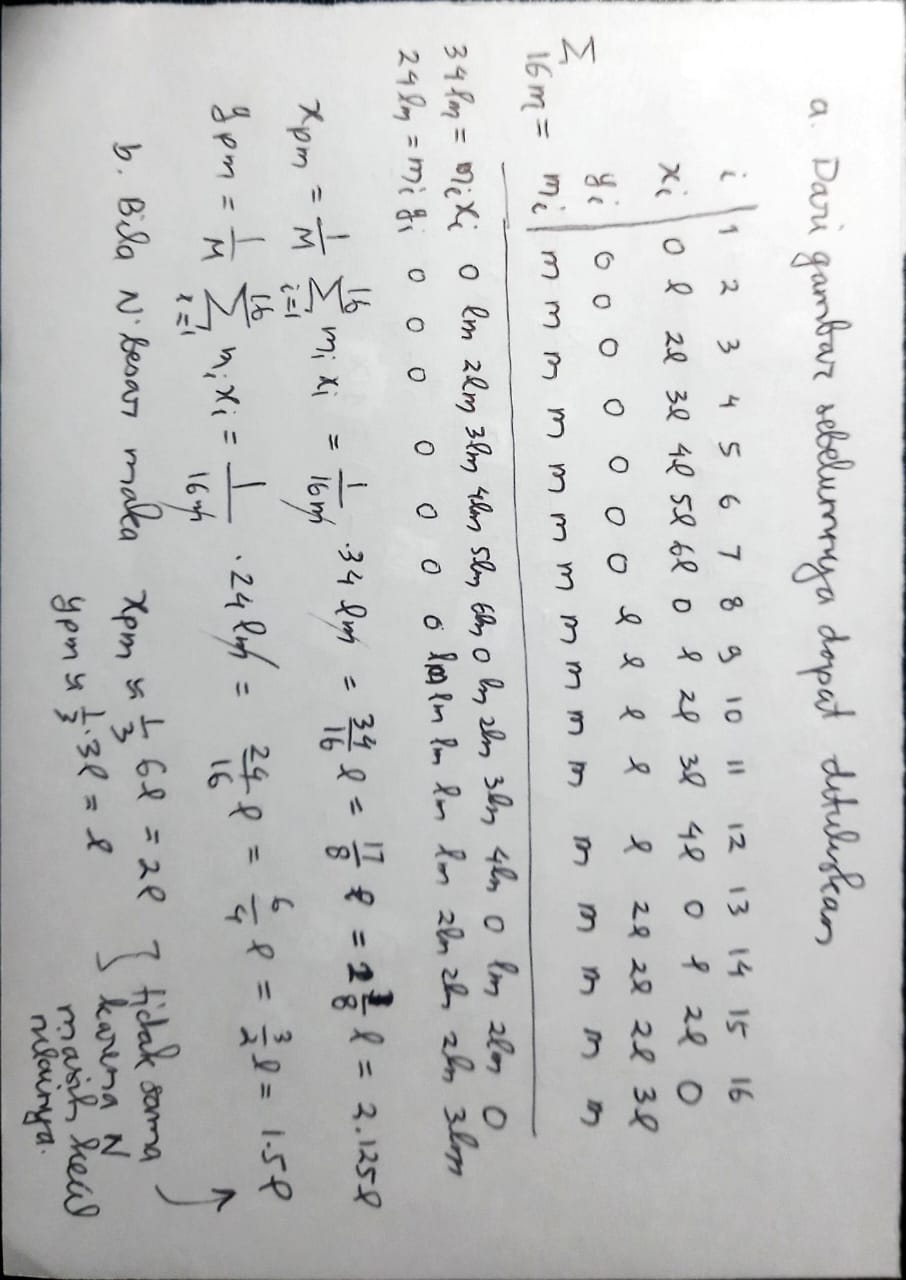 a. Dari gambar sebelumnya dapat dituliskan
i | 1 2 3 4 5 6 7 8 9 10 11 12 13 14 15 16
xi | 0 l 2l 3l 4l 5l 6l 0 l 2l 3l 4l 0 l 2l 0
yi | 0 0 0 0 0 0 0 l l l l l 2l 2l 2l 3l
Σ 16m = mi | m m m m m m m m m m m m m m m m
34lm = mixi 0 lm 2lm 3lm 4lm 5lm 6lm 0 lm 2lm 3lm 4lm 0 lm 2lm 0
24lm = miyi 0 0 0 0 0 0 0 lm lm lm lm lm 2lm 2lm 2lm 3lm
xpm = 1/M Σ_{i=1}^{16} mi xi = 1/16m · 34 lm = 34/16 l = 17/8 l = 2 1/8 l = 2.125l
ypm = 1/M Σ_{i=1}^{16} mi xi = 1/16m · 24 lm = 24/16 l = 6/4 l = 3/2 l = 1.5l
b. Bila N besar maka xpm ≈ 1/3 6l = 2l } tidak sama
ypm ≈ 1/3 · 3l = l karena N
masih kecil
nilainya.